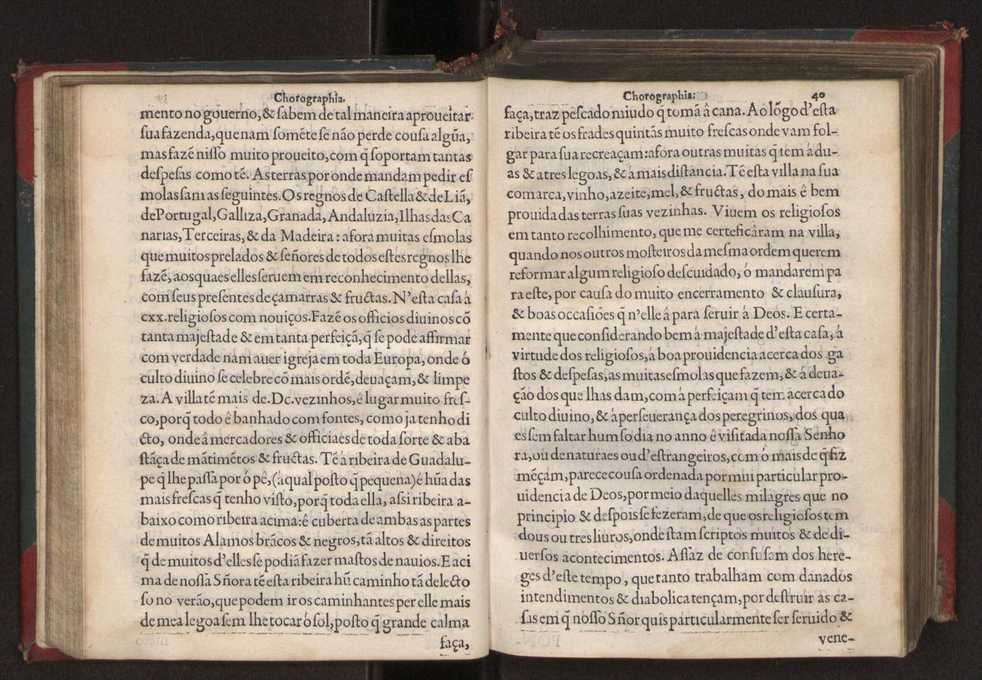 Chorographia.
mento no gouerno, & sabem de tal maneira aproueitar
sua fazenda, que nam somẽte se não perde cousa algũa,
mas fazẽ nisso muito proueito, com q̃ soportam tantas
despesas como tẽ. As terras por onde mandam pedir es
molas sam as seguintes. Os regnos de Castella & de Liã,
de Portugal, Galliza, Granada, Andaluzia, Ilhas das Ca
narias, Terceiras, & da Madeira: afora muitas esmolas
que muitos prelados & señores de todos estes regnos lhe
fazẽ, aos quaes elles seruem em reconhecimento dellas,
com seus presentes de çamarras & fructas. N'esta casa à
cxx. religiosos com nouiços. Fazẽ os officios diuinos cõ
tanta majestade & em tanta perfeiçã, q̃ se pode affirmar
com verdade nam auer igreja em toda Europa, onde ó
culto diuino se celebre cõ mais ordẽ, deuaçam, & limpe
za. A villa tẽ mais de. Dc. vezinhos, é lugar muito fres-
co, porq̃ todo é banhado com fontes, como ja tenho di
cto, onde â mercadores & officiaes de toda sorte & aba
stãça de mãtimẽtos & fructas. Tẽ á ribeira de Guadalu-
pe q̃ lhe passa por ó pé, (à qual posto q̃ pequena) é hũa das
mais frescas q̃ tenho visto, porq̃ toda ella, assi ribeira a-
baixo como ribeira acima: é cuberta de ambas as partes
de muitos Alamos brãcos & negros, tã altos & direitos
q̃ de muitos d'elles se podiã fazer mastos de nauios. E aci
ma de nossa Sñora tẽ esta ribeira hũ caminho tã delecto
so no verão, que podem ir os caminhantes per elle mais
de mea legoa sem lhe tocar ó sol, posto q̃ grande calma
faça,
Chorographia: 40
faça, traz pescado miudo q̃ tomã â cana. Ao lõgo d'esta
ribeira tẽ os frades quintãs muito frescas onde vam fol-
gar para sua recreaçam: afora outras muitas q̃ tem á du-
as & a tres legoas, & à mais distancia. Tẽ esta villa na sua
comarca, vinho, azeite, mel, & fructas, do mais é bem
prouida das terras suas vezinhas. Viuem os religiosos
em tanto recolhimento, que me certeficâram na villa,
quando nos outros mosteiros da mesma ordem querem
reformar algum religioso descuidado, ó mandarem pa
ra este, por causa do muito encerramento & clausura,
& boas occasiões q̃ n'elle â para seruir á Deos. E certa-
mente que considerando bem á majestade d'esta casa, á
virtude dos religiosos, á boa prouidencia acerca dos ga
stos & despesas, as muitas esmolas que fazem, & á deua-
ção dos que lhas dam, com á perfeiçam q̃ tem acerca do
culto diuino, & à perseuerança dos peregrinos, dos qua
es sem faltar hum so dia no anno ê visitada nossa Senho
ra, ou de naturaes ou d'estrangeiros, com ó mais de q̃ fiz
mẽçam, parece cousa ordenada por mui particular pro-
uidencia de Deos, por meio daquelles milagres que no
principio & despois se fezeram, de que os religiosos tem
dous ou tres liuros, onde stam scriptos muitos & de di-
uersos acontecimentos. Assaz de confusam dos here-
ges d'este tempo, que tanto trabalham com danados
intendimentos & diabolica tençam, por destruir as ca-
sas em q̃ nosso Sñor quis particularmente ser seruido &
vene-